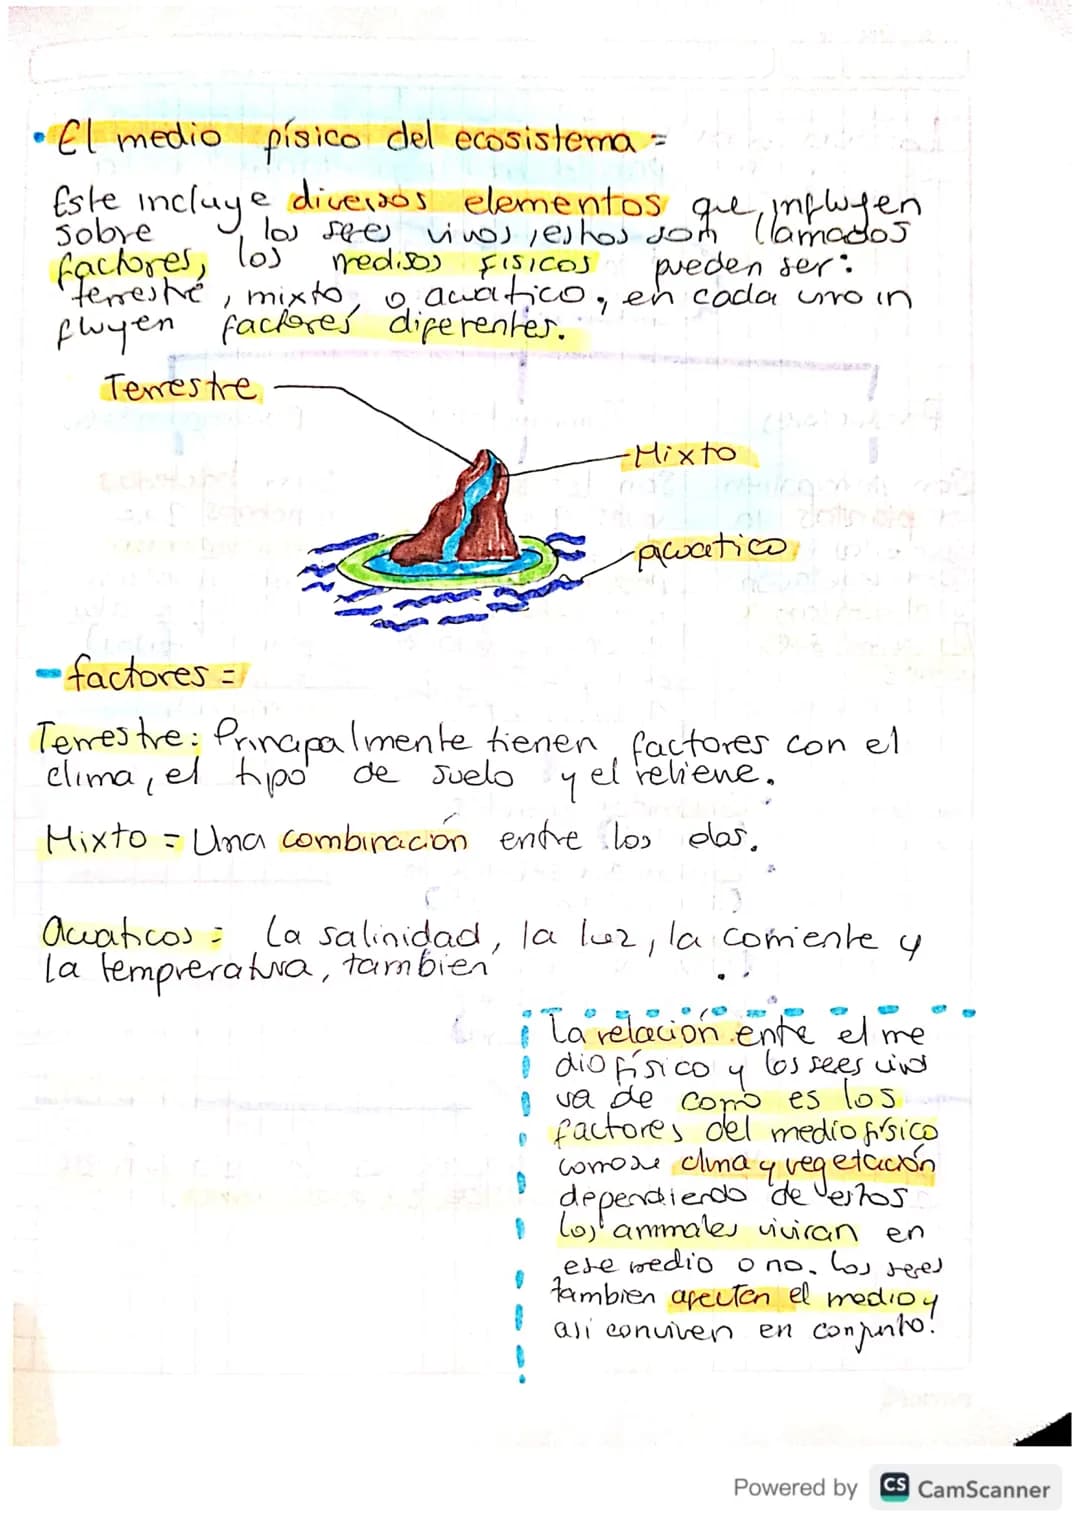 • El medio físico del ecosistema =
Este incluye diversos elementos que, influyen
sobre los seres vivos, estos son llamados
factores, los medisos fisicos pueden ser:
terrestre, mixto, o acuatico, en cada uno in
fluyen factores diferentes.
Terrestre
Mixto
Acuatico
- factores =
Terrestre: Principalmente tienen factores con el
clima, el tipo de suelo y el reliene.
Mixto = Una combiración entre los dos.
Acuaticos = La salinidad, la luz, la corriente y
la tempreratura, tambien
La relación ente el me
dio físico y los sees vivos
va de como es los
factores del medio físico
como se clima y vegetación
dependiendo de estos
los animales viviran en
ese medio o no. Los seres
tambien afectan el medio y
asi conviven en conjunto!
Powered by CS CamScanner